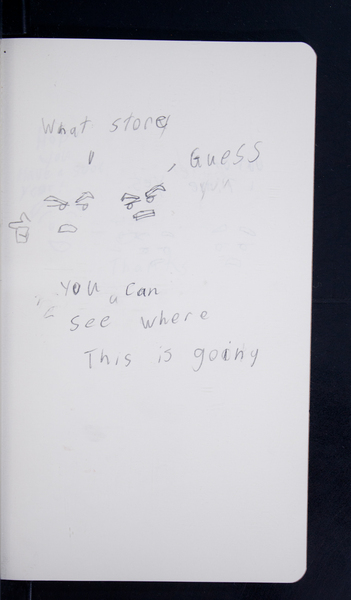 What storey
, Guess
You can
see where
This is going